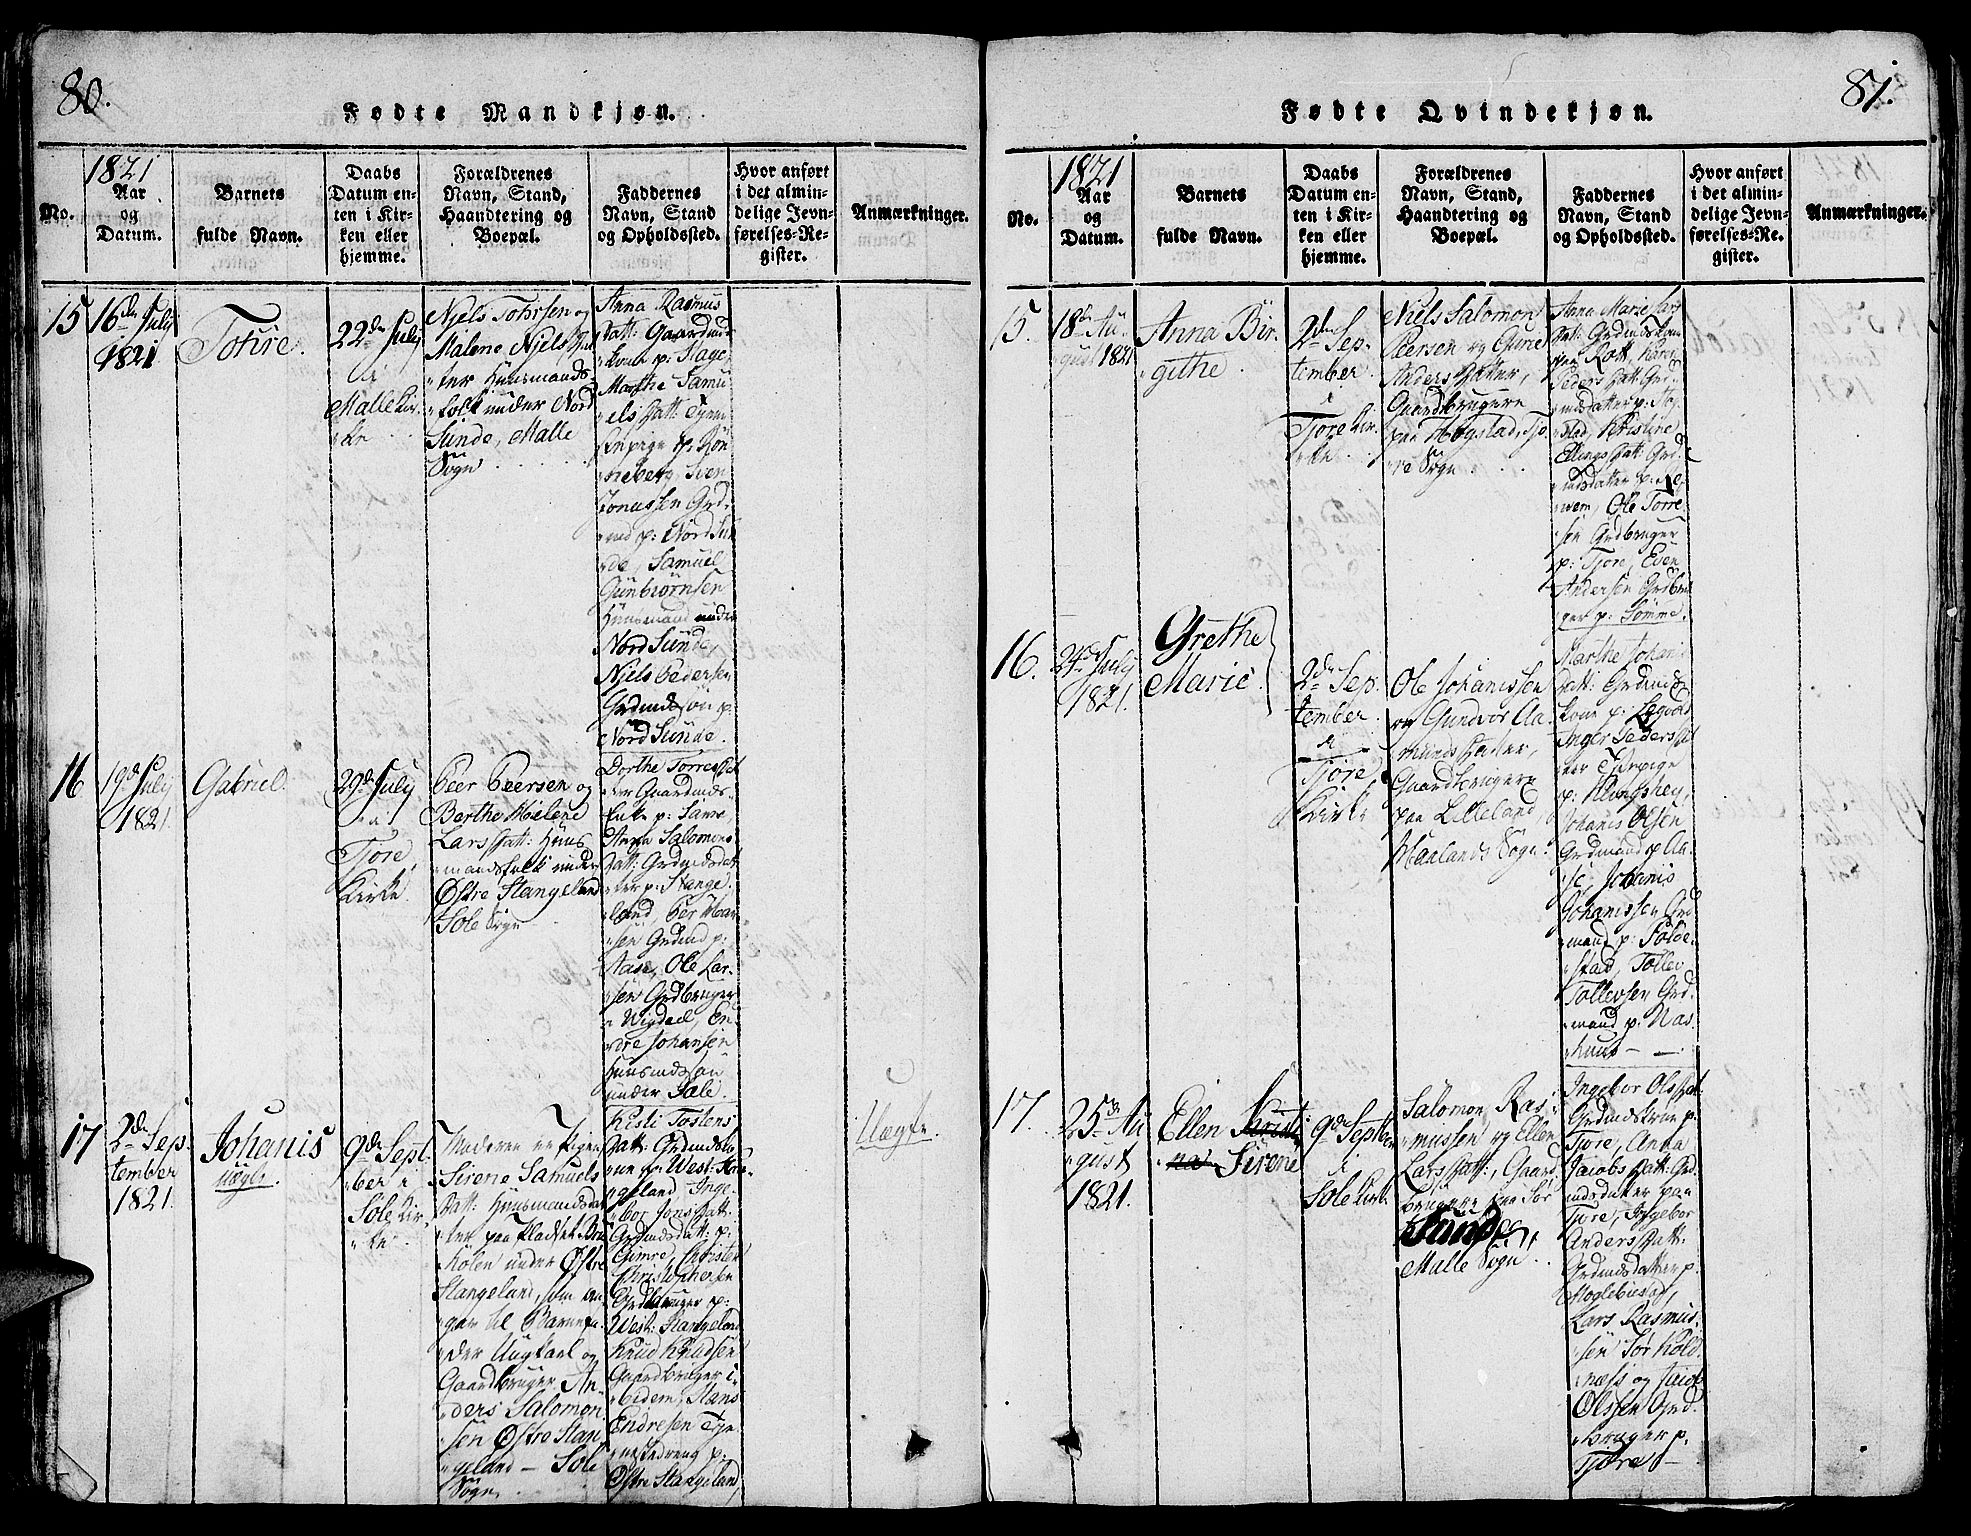 80.
Fødte Mandkjøn.
No.
1821
Aar
og
Datum.
Barnets
fulde Navn.
Daabs
Datum en-
ten i Kir-
ken eller
hjemme.
Forældrenes
Navn, Stand,
Haandtering og
Boepæl.
Faddernes
Navn, Stand
og Opholdssted.
Hvor anført
i det almin-
delige Jevn-
førelses-Re-
gister.
Anmærkninger.
15
16de July
1821
Tohre.
22de July
i
Malle Kir-
ke
Njels Tohrsen og
Malene Njels Dat
ter Huusmands-
folk under Nord
Sunde, Malle
Sogn
Anna Rasmus
Datt: Gaardmd
kone p:
Marthe Samu
els Datt: Tjene
stepige p:
Sven
Jonassen Grd-
md p: Nord Sun
de, Samuel
Gunbiørnsen
Huusmand under
Nord Sunde,
Njels Pedersen
Grdmdssøn p:
Nord Sunde.
16
19de July
1821.
Gabriel.
29de July
i
Tjore
Kirke.
Peer Peersen og
Berthe Malene
Lars Datt: Huus
mandsfolk under
Østre Stangeland
Sole Sogn
Dorthe Torres Dat
ter Gaardmds-
Enke p: Sømme
Anna Salomons
Datt: Grdmdsdat
ter p: Stange
land,
sen Grdmd p:
Aase, Ole Lar-
sen Grdbruger
i Wigdael, En-
dre Johansen
Huusmdssøn
under Sæle.
17
2de Sep
tember
1821.
Johanis
uægte.
9de Sept
ber i
Sole Kir-
ke
Moderen er Pigen
Sirene Samuels
Datt: Huusmandsdat
ter paa Pladset Bru
Kolen under Østre
Stangeland, som an
gav til Barnefa
der Ungkarl og
Gaardbruger An-
ders Salomon
sen Østre Stan
geland - Sole
Sogn
Kisti Tostens
Datt: Grdmdsko
ne p: West: Stan
geland, Inge-
bor Jons Datt:
Grdmdsdatt: p:
Gimre, Christen
Christophersen
Grdbruger p:
West: Stangeland
Knud Knudsen
Gaardbruger i-
bidem, Hans
Endresen Tje
nestedreng p:
Østre Stangeland
Uægte.
81.
Fødte Qvindekjøn.
No.
1821
Aar
og
Datum.
Barnets
fulde Navn.
Daabs
Datum en-
ten i Kir-
ken eller
hjemme.
Forældrenes
Navn, Stand,
Haandtering og
Boepæl.
Faddernes
Navn, Stand
og Opholdssted.
Hvor anført
i det almin-
delige Jevn-
førelses-Re-
gister.
Anmærkninger.
15.
18de Au
gust 1821
Anna Bir
githe.
2de Sep
tember
i
Tjore Kir-
ke
Niels Salomon
Peersen og Gurie
Anders Datter,
Gaardbrugere
paa Hogstad, Tjo
re Sogn
Anna Marie Lars
Datt: Grdmdskone
paa Rott, Karen
Peders Datt: Grd-
mdsdatter p: Hog
stad, Kristine
Ellings Datt: Grd-
mdsdatter p:
Ole Torre
sen Grdbruger
p: Tjore, Even
Andersen Grdbru
ger p: Sømme.
16.
24de July
1821.
Grethe
Marie.
2de Sep.
tember
i
Tjore
Kirke
Ole Johanissen
og Gundvor Aa
munds Datter,
Gaardbrugere
paa Lilleland,
Haalands Sogn.
Marthe Johanis
Datt: Grdmds
kone p:
Inger Peders Dat
ter Tjenpige
p:
Johanis Olsen
Grdmand p Aa
se, Johanis
Johanissen Grd
mand p: Folke
stad, Tollev
Tollevsen Grd
mand p: Nas
huus
17.
25de Au
gust
1821.
Ellen Kristi
na Sirene
9de Septem
i
Sole Kirk
Salomon Ras
mussen og Ellen
Lars Datt, Gaard
brugere paa Sør
Sunde,
Malle Sogn.
Ingebor Ols Dat
Grdmdskone p:
Tjore, Anna
Jacobs Datt: Grd
mdsdatter paa
Tjore, Ingebor
Anders Datt:
Grdmdsdatter p:
Moglebusted,
Lars Rasmus
sen Sør Kold
næss og
Olssen Grd
bruger p.
Tjore